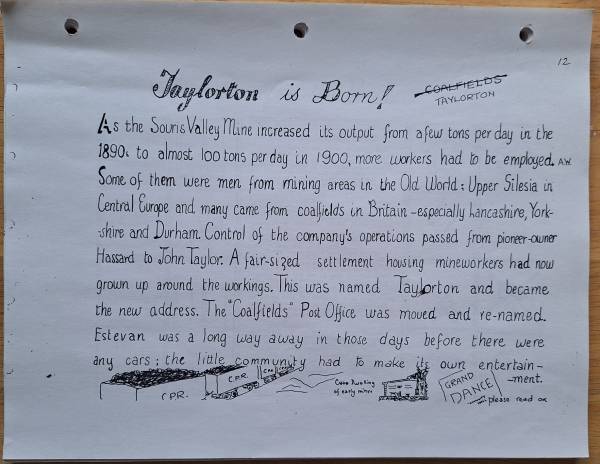 12
Taylorton is Born!
COALFIELDS
TAYLORTON
As the Souris Valley Mine increased its output from a few tons per day in the
1890s to almost 100 tons per day in 1900, more workers had to be employed. A.W.
Some of them were men from mining areas in the Old World: Upper Silesia in
Central Europe and many came from coalfields in Britain - especially Lancashire, York-
-shire and Durham. Control of the company's operations passed from pioneer-owner
Hassard to John Taylor. A fair-sized settlement housing mineworkers had now
grown up around the workings. This was named Taylorton and became
the new address. The "Coalfields" Post Office was moved and re-named.
Estevan was a long way away in those days before there were
any cars; the little community had to make its own entertain-
-ment.
C.P.R.
C.P.R.
of early mines
GRAND
DANCE
please read on